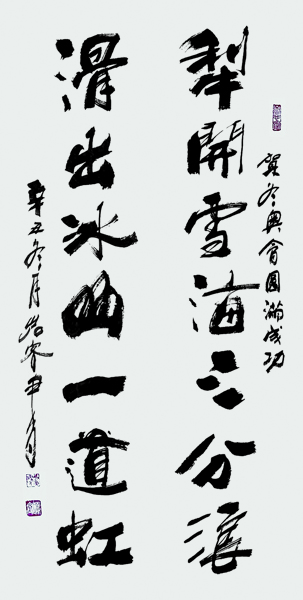 賀冬奧會圓滿成功
犁開雪海三分浪
滑出冰山一道虹
辛丑冬月